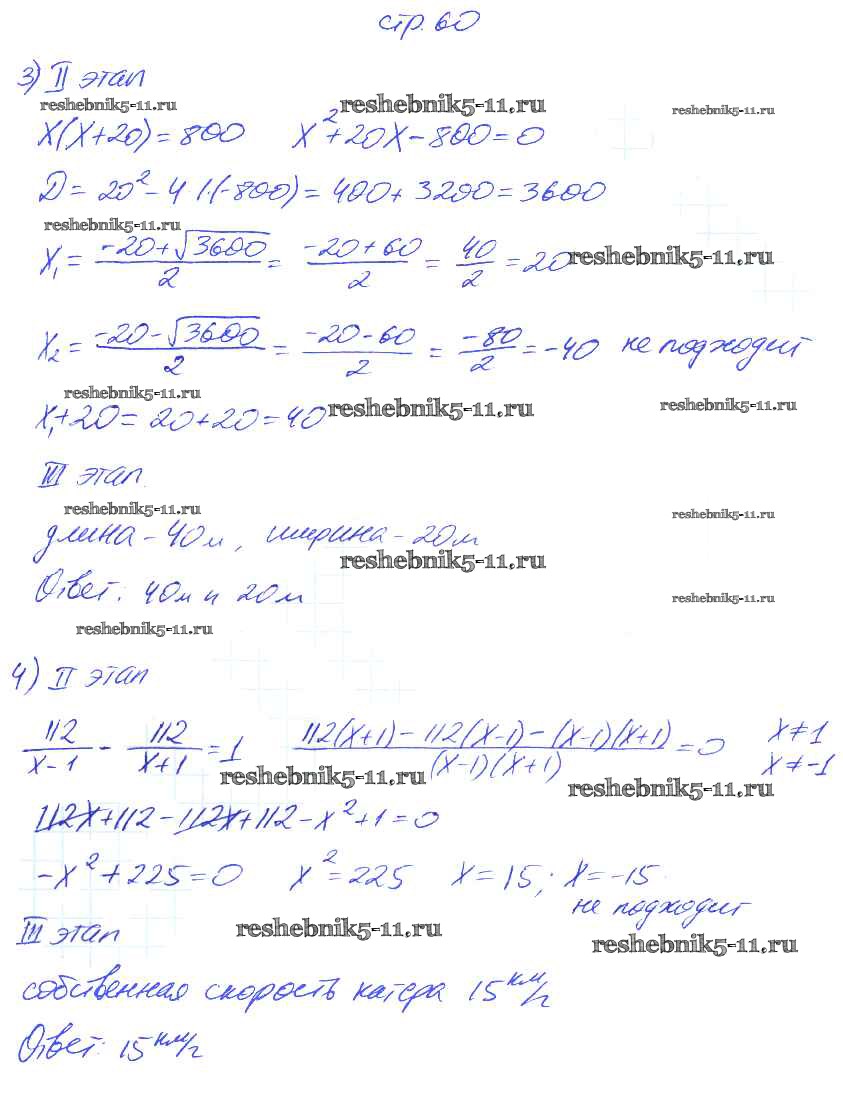 стр. 60
3) II этап
reshebnik5-11.ru reshebnik5-11.ru reshebnik5-11.ru
x(x+20)=800 x²+20x-800=0
D=20²-4·1·(-800)=400+3200=3600
reshebnik5-11.ru
x₁ = (-20+√3600)/2 = (-20+60)/2 = 40/2 = 20 reshebnik5-11.ru
x₂ = (-20-√3600)/2 = (-20-60)/2 = -80/2 = -40 не подходит
reshebnik5-11.ru
x₁+20=20+20=40 reshebnik5-11.ru reshebnik5-11.ru
III этап.
reshebnik5-11.ru reshebnik5-11.ru
длина - 40м, ширина - 20м
reshebnik5-11.ru
Ответ: 40м и 20м reshebnik5-11.ru
reshebnik5-11.ru
4) II этап
112/(x-1) - 112/(x+1) = 1 (112(x+1)-112(x-1)-(x-1)(x+1))/((x-1)(x+1)) = 0 x≠1
x≠-1
reshebnik5-11.ru reshebnik5-11.ru
112x+112-112x+112-x²+1=0
-x²+225=0 x²=225 x=15; x=-15
не подходит
III этап reshebnik5-11.ru reshebnik5-11.ru
собственная скорость катера 15 км/г
Ответ: 15 км/г